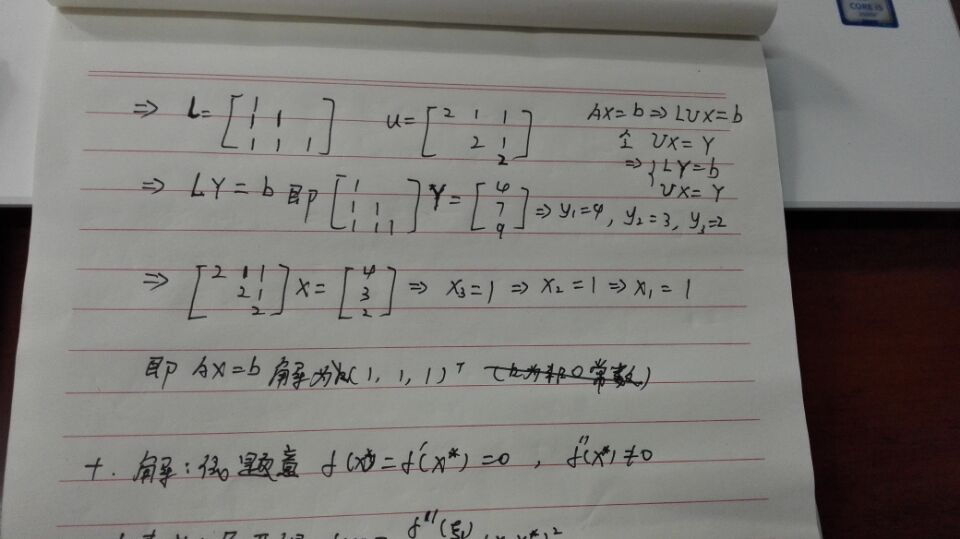 CORE i5
⇒ L=[1; 1 1; 1 1 1] U=[2 1 1; 2 1; 2] AX=b⇒LUX=b
令 UX=Y
⇒{LY=b
UX=Y
⇒ LY=b 即[1; 1 1; 1 1 1]Y=[4; 7; 9]⇒y₁=4, y₂=3, y₃=2
⇒ [2 1 1; 2 1; 2]X=[4; 3; 2] ⇒ X₃=1 ⇒ X₂=1 ⇒ X₁=1
即 AX=b 解为(1,1,1)ᵀ
十. 解: 题意 f(x*)=f'(x*)=0, f''(x*)≠0